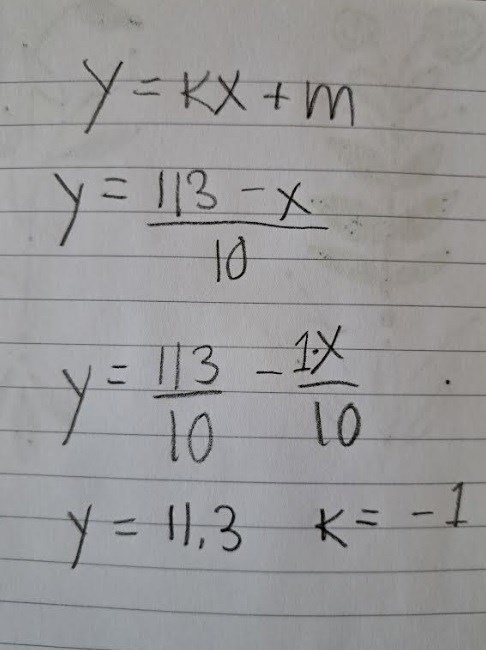 y = kx + m
y = 113 - x / 10
y = 113/10 - 1·x/10
y = 11,3 k = -1